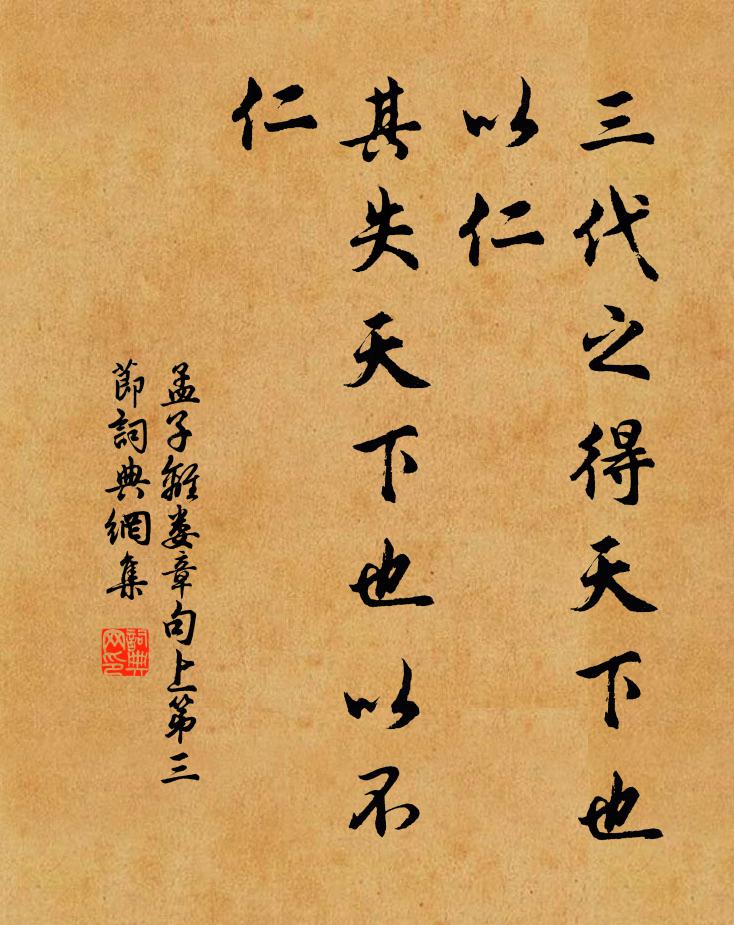 三代之得天下也
以仁
其失天下也以不
仁
孟子離娄章句上第三
節詞典網集
詞典
网印